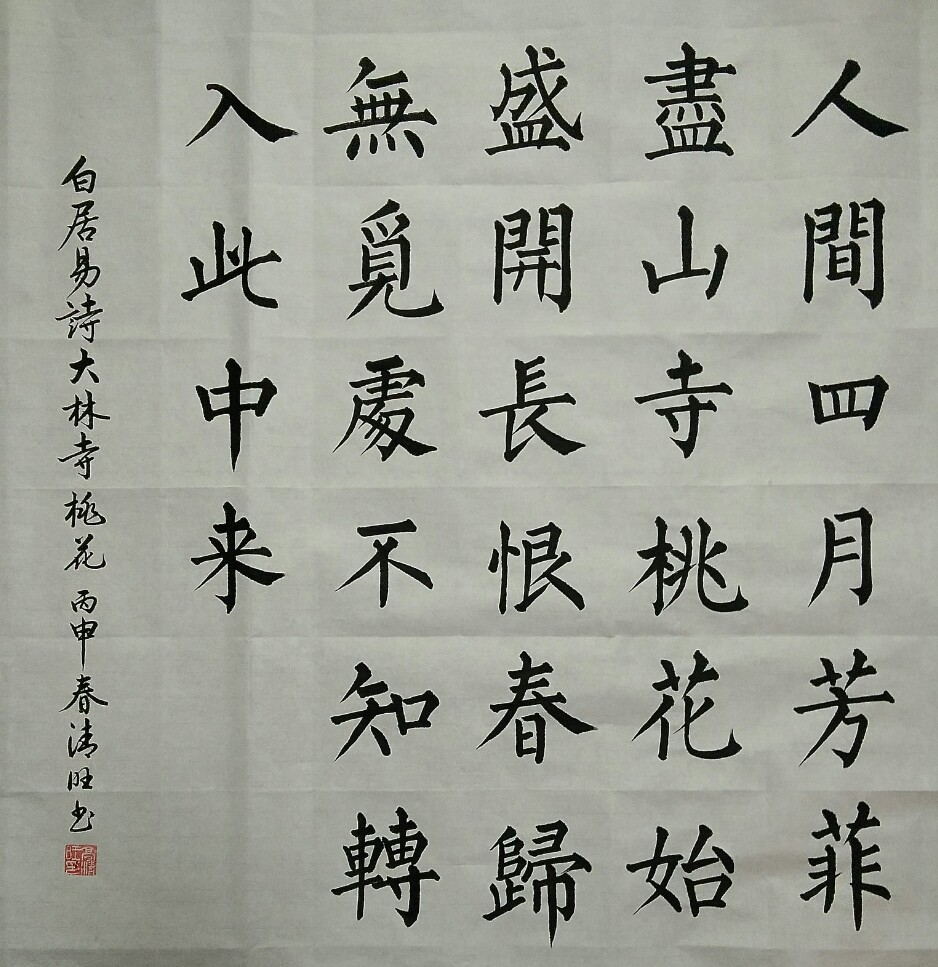 人間四月芳菲
盡山寺桃花始
盛開長恨春歸
無覓處不知轉
入此中来
白居易詩大林寺桃花 丙申春清旺书